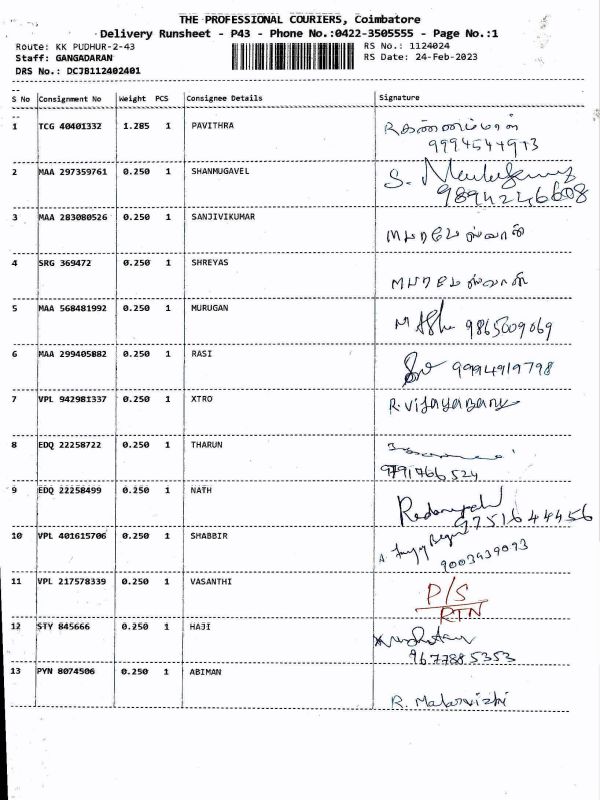 THE PROFESSIONAL COURIERS, Coimbatore
Delivery Runsheet - P43 - Phone No.:0422-3505555 - Page No.:1
Route: KK PUDHUR-2-43 RS No.: 1124024
Staff: GANGADARAN RS Date: 24-Feb-2023
DRS No.: DCJB112402401
S No Consignment No Weight PCS Consignee Details Signature
1 TCG 40401332 1.285 1 PAVITHRA
2 MAA 297359761 0.250 1 SHANMUGAVEL S.
9894246608
3 MAA 283080526 0.250 1 SANJIVIKUMAR
4 SRG 369472 0.250 1 SHREYAS
5 MAA 568481992 0.250 1 MURUGAN 9865009069
6 MAA 299405882 0.250 1 RASI 9994919798
7 VPL 942981337 0.250 1 XTRO R. Vijayabanu
8 EDQ 22258722 0.250 1 THARUN
9791766524
9 EDQ 22258499 0.250 1 NATH
9751644456
10 VPL 401615706 0.250 1 SHABBIR A.
9003939093
11 VPL 217578339 0.250 1 VASANTHI P/S
RTN
12 STY 845666 0.250 1 HAJI
9677885353
13 PYN 8074506 0.250 1 ABIMAN
R. Malarvizhi